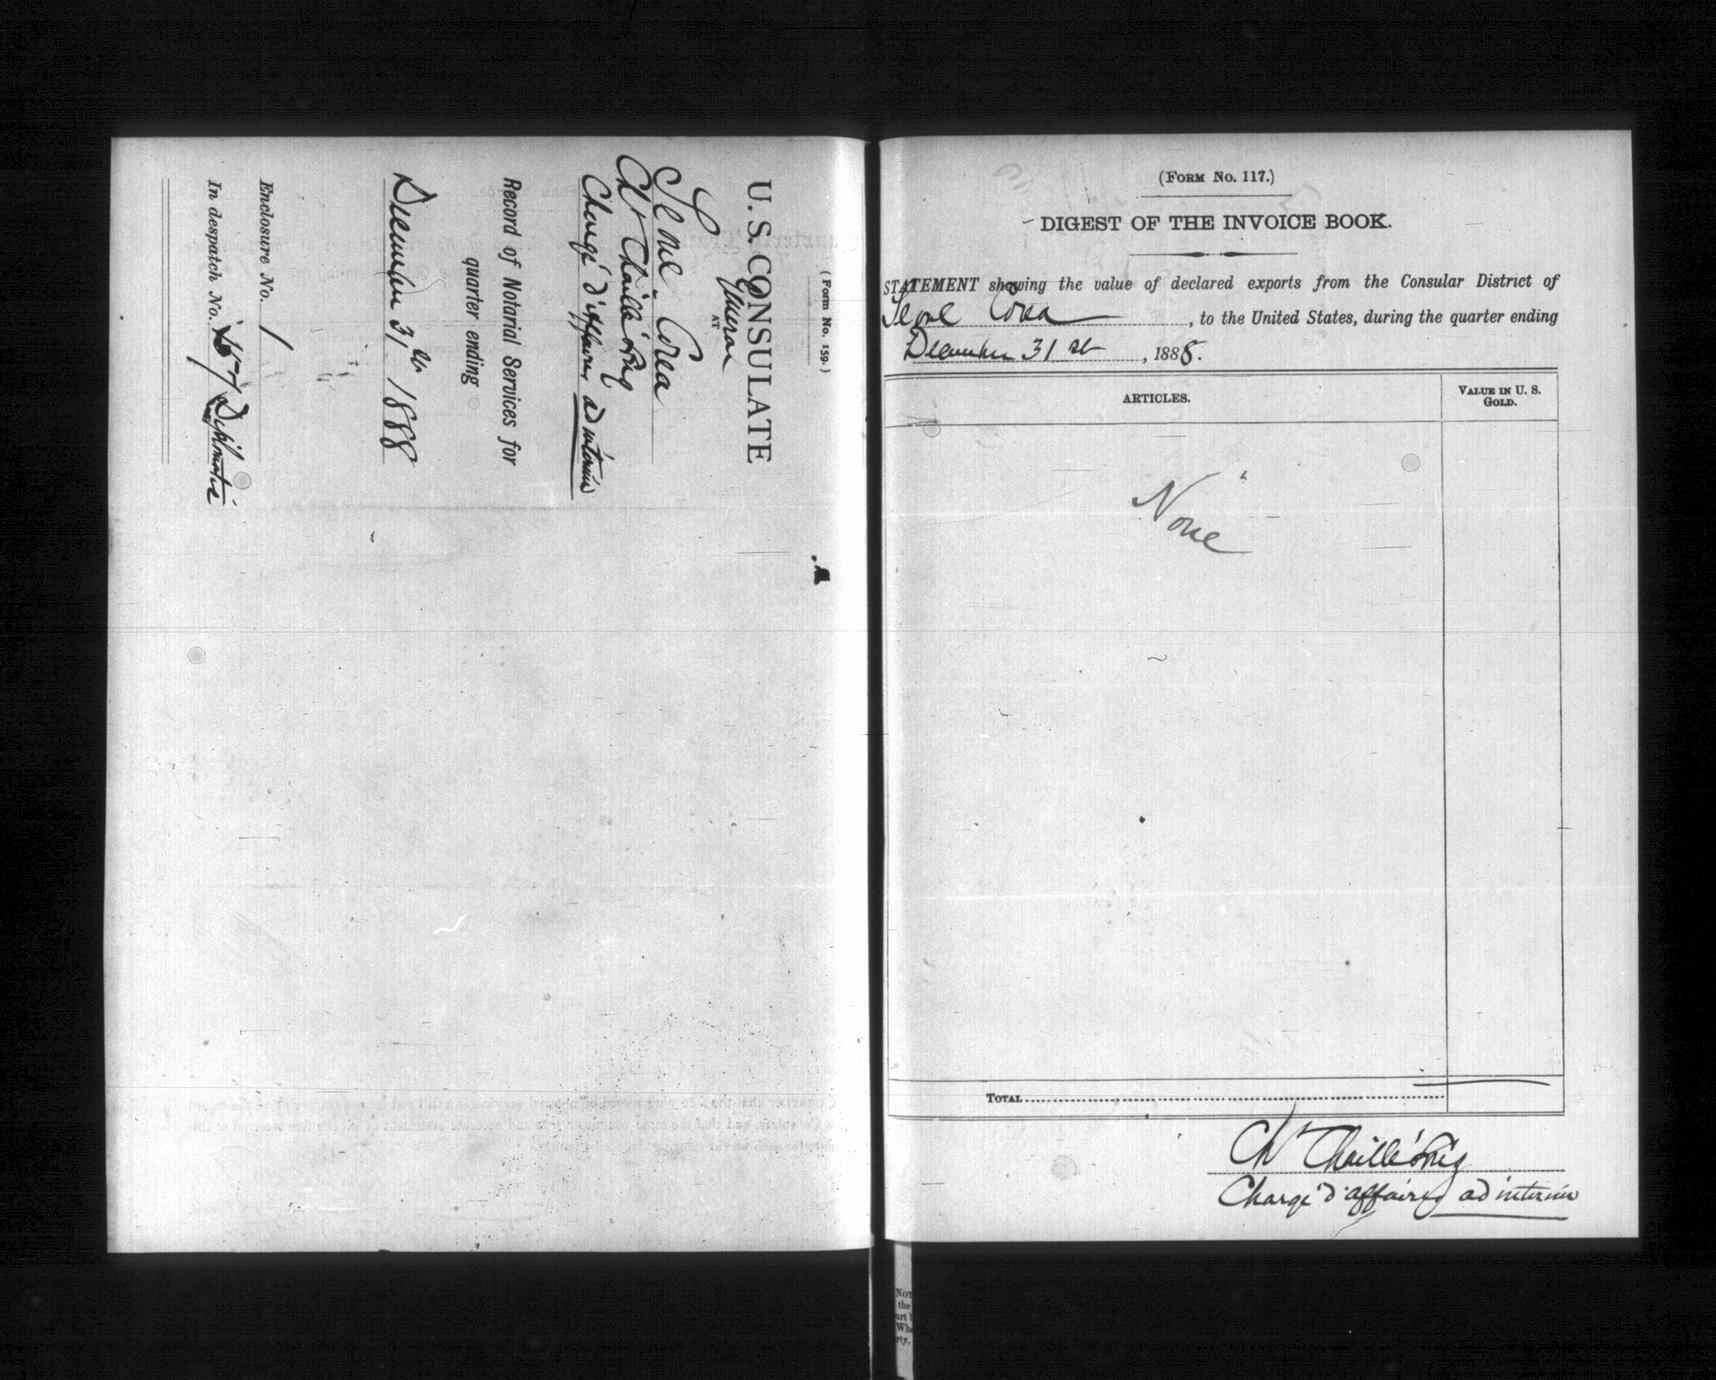 (Form No. 159.)
U. S. CONSULATE
General
AT
Seoul - Corea
Ch Chaillé Long
Chargé d'affaires ad interim
Record of Notarial Services for
quarter ending
December 31st 1888
Enclosure No. 1
In despatch No. Diplomatic
(FORM No. 117.)
DIGEST OF THE INVOICE BOOK.
STATEMENT showing the value of declared exports from the Consular District of
Seoul Corea, to the United States, during the quarter ending
December 31st, 1888.
ARTICLES.
VALUE IN U. S.
GOLD.
None
TOTAL
Ch Chaillé Long
Chargé d'affaires ad interim